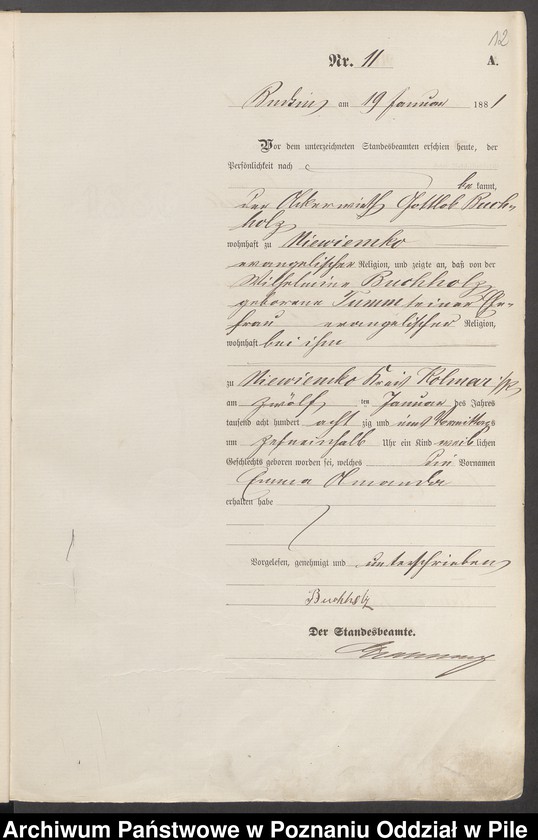 12
Nr. 11
A.
Budsin, am 19 Januar 1881
Vor dem unterzeichneten Standesbeamten erschien heute, der
Persönlichkeit nach
be kannt,
der Ackerwirth Gottlob Buch-
holz
wohnhaft zu Niewiemko
evangelischer Religion, und zeigte an, daß von der
Wilhelmine Buchholz,
geborene Tumm seiner Ehe-
frau evangelischer Religion,
wohnhaft bei ihm
zu Niewiemko Kreis Kolmar i/P
am zwölf ten Januar des Jahres
tausend acht hundert acht zig und eins Vormittags
um zehneinhalb Uhr ein Kind weib lichen
Geschlechts geboren worden sei, welches die Vornamen
Emma Amanda
erhalten habe
Vorgelesen, genehmigt und unterschrieben
Buchholz
Der Standesbeamte.
Archiwum Państwowe w Poznaniu Oddział w Pile